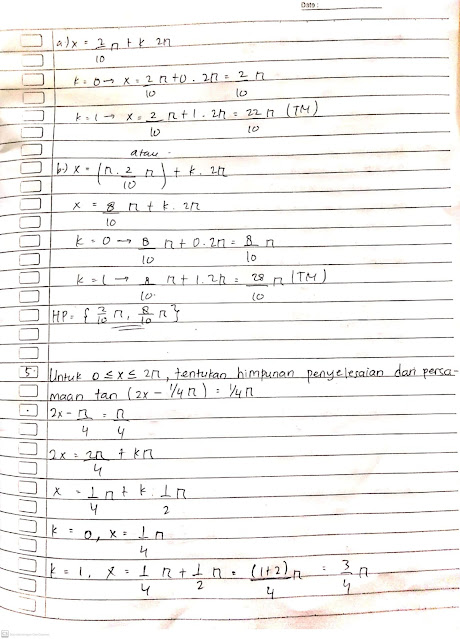 Date :
a) x = 2/10 π + k 2π
k = 0 → x = 2/10 π + 0 . 2π = 2/10 π
k = 1 → x = 2/10 π + 1 . 2π = 22/10 π (TM)
atau
b.) x = (π . 2/10 π) + k. 2π
x = 8/10 π + k. 2π
k = 0 → 8/10 π + 0. 2π = 8/10 π
k = 1 → 8/10 π + 1. 2π = 28/10 π (TM)
HP = { 2/10 π, 8/10 π }
5. Untuk 0 ≤ x ≤ 2π, tentukan himpunan penyelesaian dari persa-
maan tan (2x - 1/4 π) = 1/4 π
2x - π/4 = π/4
2x = 2π/4 + kπ
x = 1/4 π + k. 1/2 π
k = 0, x = 1/4 π
k = 1, x = 1/4 π + 1/2 π = (1+2)/4 π = 3/4 π